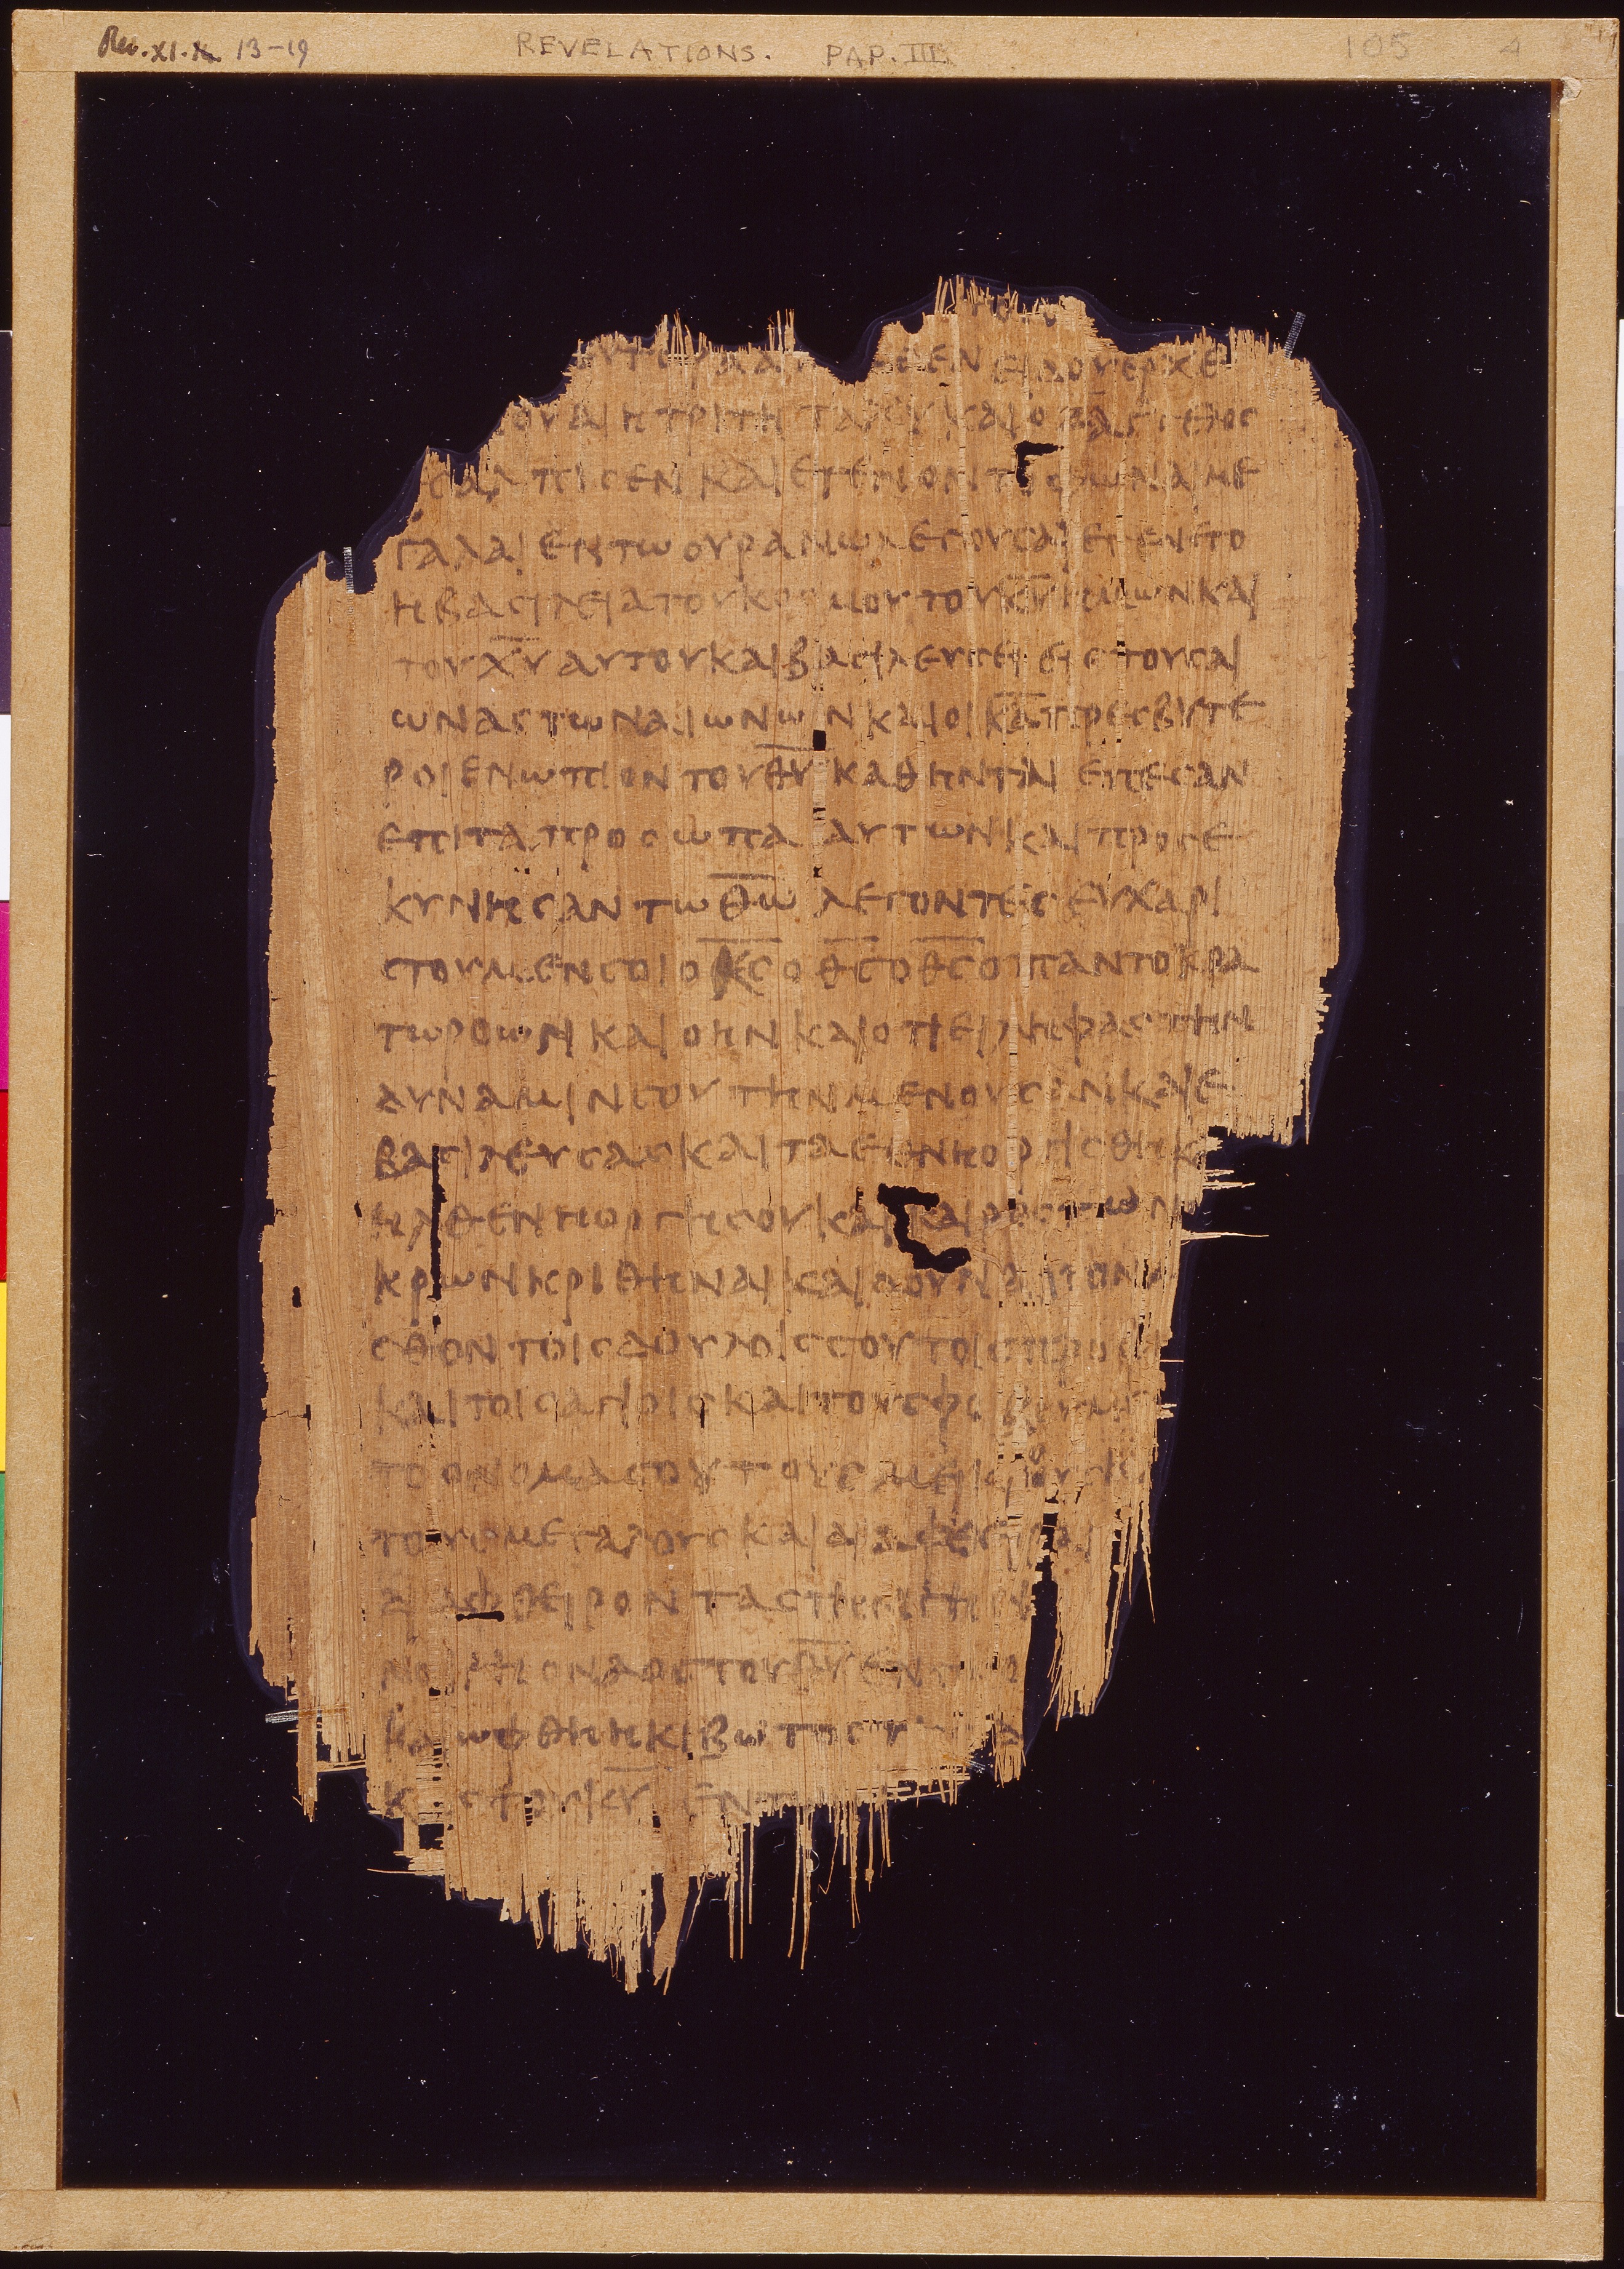 Rev. XI. 13-19 REVELATIONS. PAP. III. 105 4
ΕΡΧΕ
ΟΥΑΙ Η ΤΡΙΤΗ ΤΑΧΥ ΚΑΙ Ο ΑΓΓΕΛΟΣ
ΣΑΛΠΙΣΕΝ ΚΑΙ ΕΓΕΝΟΝΤΟ ΦΩΝΑΙ ΜΕ
ΓΑΛΑΙ ΕΝ ΤΩ ΟΥΡΑΝΩ ΛΕΓΟΥΣΑΙ ΕΓΕΝΕΤΟ
Η ΒΑΣΙΛΕΙΑ ΤΟΥ ΚΟΣΜΟΥ ΤΟΥ Κ̅Υ̅ ΗΜΩΝ ΚΑΙ
ΤΟΥ Χ̅Υ̅ ΑΥΤΟΥ ΚΑΙ ΒΑΣΙΛΕΥΣΕΙ ΕΙΣ ΤΟΥΣ ΑΙ
ΩΝΑΣ ΤΩΝ ΑΙΩΝΩΝ ΚΑΙ ΟΙ Κ̅Δ̅ ΠΡΕΣΒΥΤΕ
ΡΟΙ ΕΝΩΠΙΟΝ ΤΟΥ Θ̅Υ̅ ΚΑΘΗΝΤΑΙ ΕΠΕΣΑΝ
ΕΠΙ ΤΑ ΠΡΟΣΩΠΑ ΑΥΤΩΝ ΚΑΙ ΠΡΟΣΕ
ΚΥΝΗΣΑΝ ΤΩ Θ̅Ω̅ ΛΕΓΟΝΤΕΣ ΕΥΧΑΡΙ
ΣΤΟΥΜΕΝ ΣΟΙ Ο Κ̅Σ̅ Ο Θ̅Σ̅ Ο Θ̅Σ̅ Ο ΠΑΝΤΟΚΡΑ
ΤΩΡ Ο ΩΝ ΚΑΙ Ο ΗΝ ΚΑΙ Ο ΤΙ ΕΙΛΗΦΑΣ ΤΗΝ
ΔΥΝΑΜΙΝ ΣΟΥ ΤΗΝ ΜΕΝΟΥΣΑΝ ΚΑΙ Ε
ΒΑΣΙΛΕΥΣΑΣ ΚΑΙ ΤΑ ΕΘΝΗ ΟΡΓΙΣΘΗ Κ
ΗΛΘΕΝ Η ΟΡΓΗ ΣΟΥ ΚΑΙ ΚΑΙΡΟΣ ΤΩΝ
ΚΡΩΝ ΚΡΙΘΗΝΑΙ ΚΑΙ ΔΟΥΝΑΙ ΤΟΝ
ΣΘΟΝ ΤΟΙΣ ΔΟΥΛΟΙΣ ΣΟΥ ΤΟΙΣ ΠΡΟ
ΚΑΙ ΤΟΙΣ ΑΓΙΟΙΣ ΚΑΙ ΤΟΥΣ
ΤΟ ΟΝΟΜΑ ΣΟΥ ΤΟΥΣ ΜΕΙΚΡΟΥΣ Κ
ΤΟΥΣ ΜΕΓΑΛΟΥΣ ΚΑΙ ΔΙΑΦΘΕΙΡΑΙ
ΔΙΑΦΘΕΙΡΟΝΤΑΣ ΤΗΝ ΓΗΝ
Ο ΝΑΟΣ ΤΟΥ Θ̅Υ̅ ΕΝ
ΚΑΙ ΩΦΘΗ Η ΚΙΒΩΤΟΣ
ΕΝ